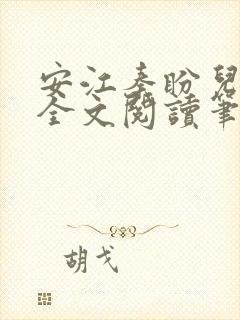 安江秦盼兒
全文閱讀筆
胡戈